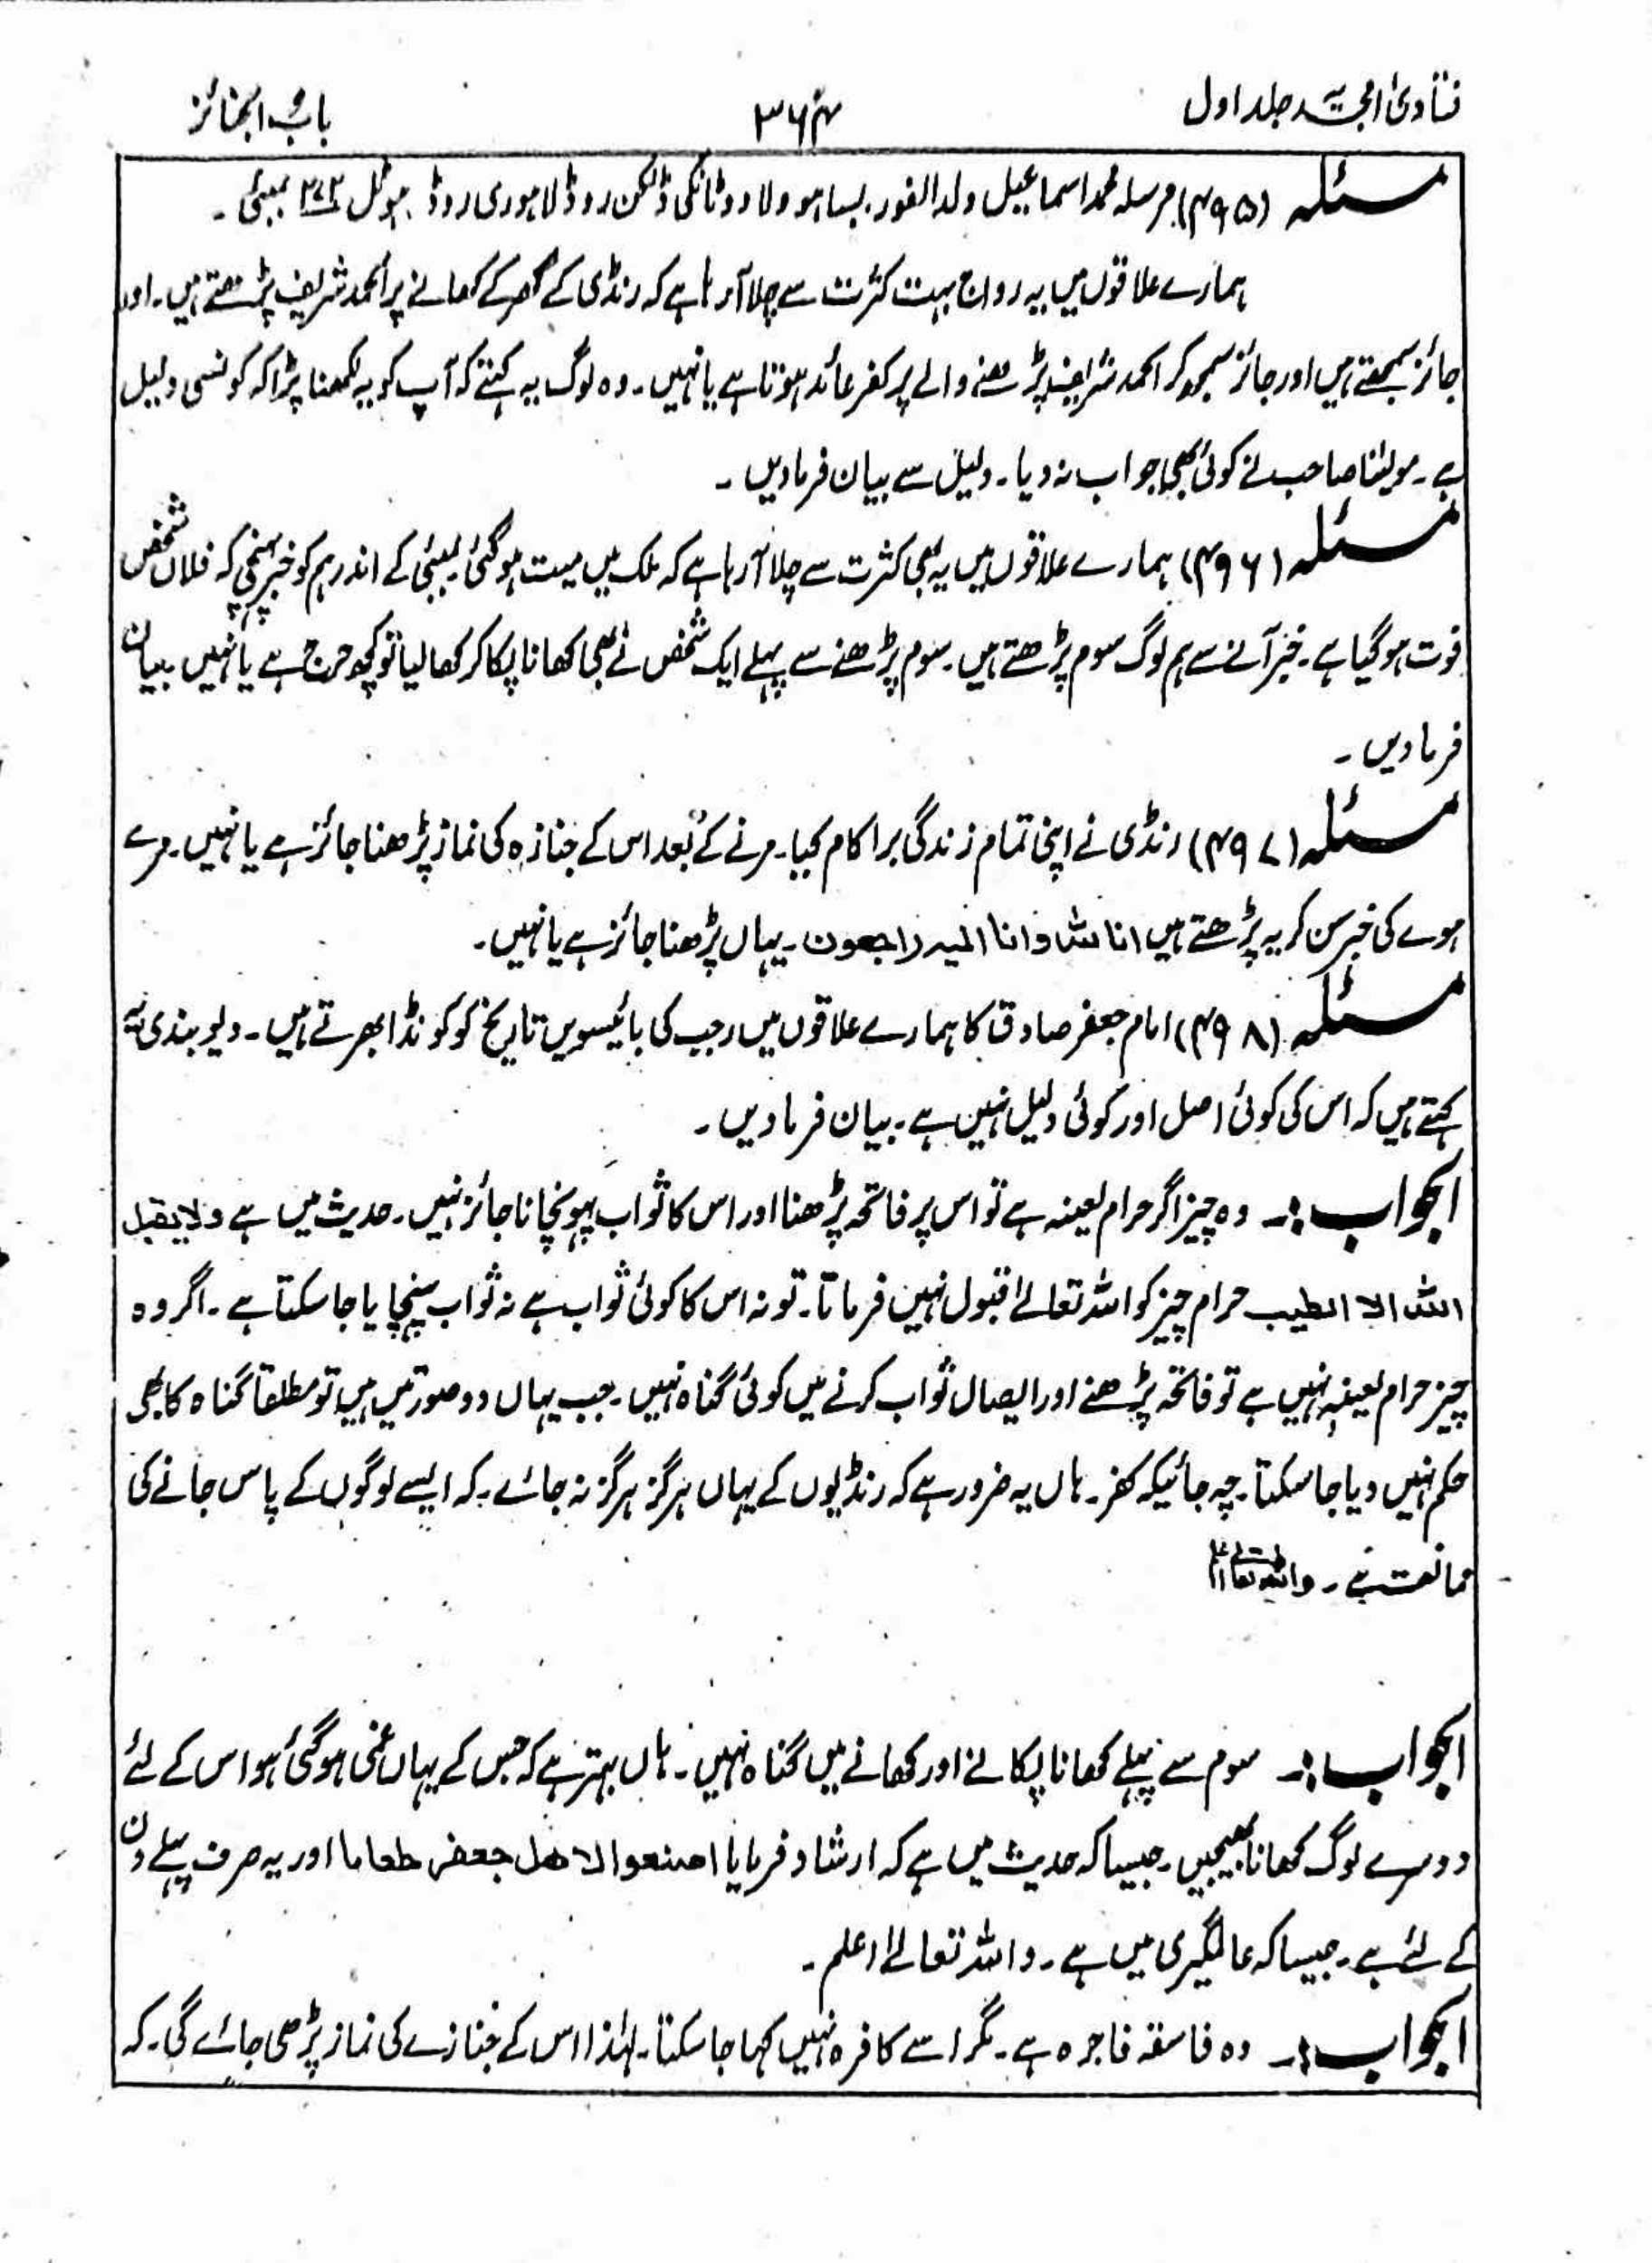 فتاویٰ امجدیہ جلد اول
۳۶۴
باب الجنائز
مسئلہ (۴۹۵) مرسلہ محمد اسماعیل ولد الغور ٹانکی ڈنکن روڈ لاہوری روڈ ہوٹل بمبئی ۔
ہمارے علاقوں میں یہ رواج بہت کثرت سے چلا آرہا ہے کہ رنڈی کے گھر کے کھانے پر الحمد شریف پڑھتے ہیں ۔ اور
جائز سمجھتے ہیں اور جائز سمجھ کر الحمد شریف پڑھنے والے پر کفر عائد ہوتا ہے یا نہیں ۔ وہ لوگ یہ کہتے کہ آپ کو یہ لکھنا پڑا کہ کونسی دلیل
ہے ۔ مولیٰنا صاحب نے کوئی بھی جواب نہ دیا ۔ دلیل سے بیان فرمادیں ۔
مسئلہ (۴۹۶) ہمارے علاقوں میں یہ بھی کثرت سے چلا آرہا ہے کہ ملک میں میت ہوگئی بمبئی کے اندر ہم کو خبر پہنچی کہ فلاں شخص
فوت ہوگیا ہے ۔ خبر آنے سے ہم لوگ سوم پڑھتے ہیں ۔ سوم پڑھنے سے پہلے ایک شخص نے بھی کھانا پکا کر کھالیا تو کچھ حرج ہے یا نہیں بیان
فرمادیں ۔
مسئلہ (۴۹۷) رنڈی نے اپنی تمام زندگی برا کام کیا ۔ مرنے کے بعد اس کے جنازہ کی نماز پڑھنا جائز ہے یا نہیں ۔ مرے
ہوے کی خبر سن کر یہ پڑھتے ہیں انا للہ وانا الیہ راجعون ۔ یہاں پڑھنا جائز ہے یا نہیں ۔
مسئلہ (۴۹۸) امام جعفر صادق کا ہمارے علاقوں میں رجب کی بائیسویں تاریخ کو کونڈا بھرتے ہیں ۔ دیوبندی یہ
کہتے ہیں کہ اس کی کوئی اصل اور کوئی دلیل نہیں ہے ۔ بیان فرمادیں ۔
الجواب :۔ وہ چیز اگر حرام لعینہ ہے تو اس پر فاتحہ پڑھنا اور اس کا ثواب پہونچانا جائز نہیں ۔ حدیث میں ہے ولا یقبل
اللہ الا الطیب حرام چیز کو اللہ تعالےٰ قبول نہیں فرماتا ۔ تو نہ اس کا کوئی ثواب ہے نہ ثواب پہنچایا جاسکتا ہے ۔ اگر وہ
چیز حرام لعینہ نہیں ہے تو فاتحہ پڑھنے اور ایصال ثواب کرنے میں کوئی گناہ نہیں ۔ جب یہاں دو صورتیں ہیں تو مطلقا گناہ کا بھی
حکم نہیں دیا جاسکتا ۔ چہ جائیکہ کفر ۔ ہاں یہ ضرور ہے کہ رنڈیوں کے یہاں ہرگز ہرگز نہ جائے ۔ کہ ایسے لوگوں کے پاس جانے کی
ممانعت ہے ۔ واللہ تعالیٰ
الجواب :۔ سوم سے پہلے کھانا پکانے اور کھانے میں گناہ نہیں ۔ ہاں بہتر ہے کہ جس کے یہاں غمی ہوگئی ہو اس کے لئے
دوسرے لوگ کھانا بھیجیں ۔ جیسا کہ حدیث میں ہے کہ ارشاد فرمایا اصنعوا لاھل جعفر طعاما اور یہ صرف پہلے دن
کے لئے ہے ۔ جیسا کہ عالمگیری میں ہے ۔ واللہ تعالےٰ اعلم ۔
الجواب :۔ وہ فاسقہ فاجرہ ہے ۔ مگر اسے کافرہ نہیں کہا جاسکتا ۔ لہٰذا اس کے جنازے کی نماز پڑھی جائے گی ۔ کہ